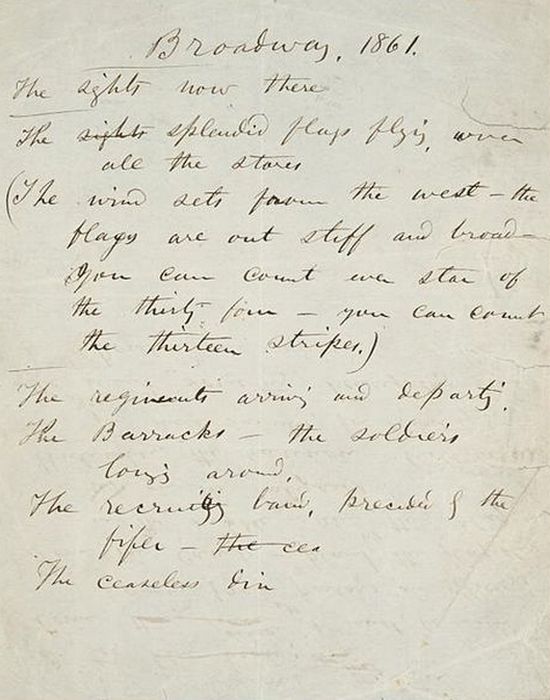 Broadway, 1861.
The sights now there
The sights splendid flags flyig over
all the stores
(The wind sets from the west – the
flags are out stiff and broad –
you can count ever star of
the thirty four – you can count
the thirteen stripes.)
The regiments arrivig and departig,
The Barracks – the soldiers
lougig around,
The recruitig band, preceded by the
fifer – the cea
The ceaseless din